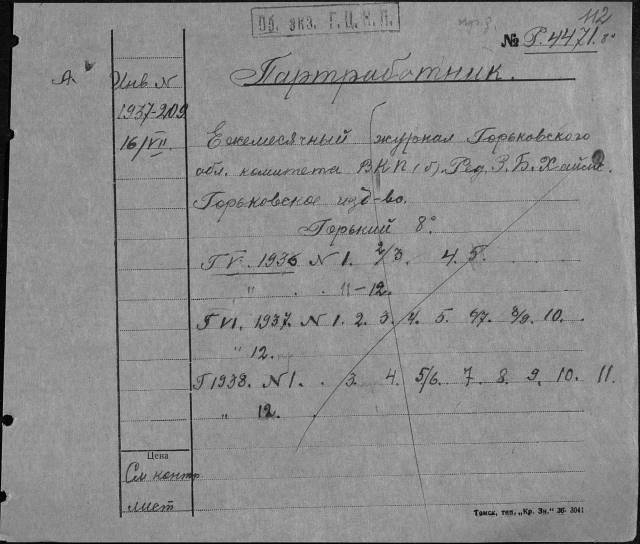 Об. экз. Г.Ц.К.П.
112
№ Р.4471. 8°
А
Инв N
1937-209
16/VII
Партработник.
Ежемесячный журнал Горьковского
обл. комитета ВКП(б). Ред. З. Б.
Горьковское изд-во.
Горький 8°
Г V. 1936 N 1. 2/3. 4. 5.
" . . 11-12.
Г VI. 1937. N 1. 2. 3. 4. 5. 6/7. 8/9. 10.
" 12.
Г 1938. N 1. . 3. 4. 5/6. 7. 8. 9. 10. 11.
" 12. .
Цена
См контр
лист
Томск, тип. „Кр. Зн." 36- 3041